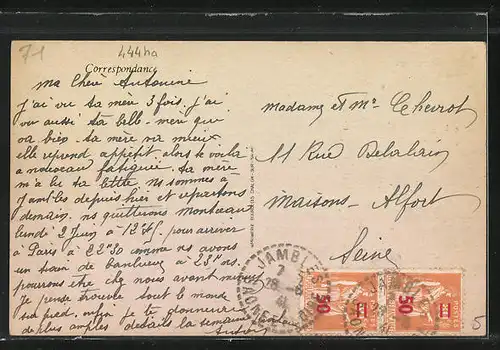 71
444ha
Correspondance
ma Chère Antonine
J'ai vu ta mère 3 fois. j'ai
vu aussi ta belle-mère qui
va bien. ta mère va mieux
elle reprend appétit. alors te voilà
a nouveau fatiguée. ta mère
m'a lu ta lettre. ns sommes a
Jambles depuis hier et repartons
demain. ns quitterons montceau
lundi 2 Juin à 12h pour arriver
à Paris à 22h30 comme ns avons
un train de banlieue à 23h ns
pourrons être chez nous avant minuit
Je pense trouver tout le monde
sur pied. moi je te donnerai
de plus amples détails la semaine
madame et Mr Chevrot
11 Rue Delalain
Maisons-Alfort
Seine
JAMBLES
7
28 -5
41
SAONE
POSTES
50
50
5